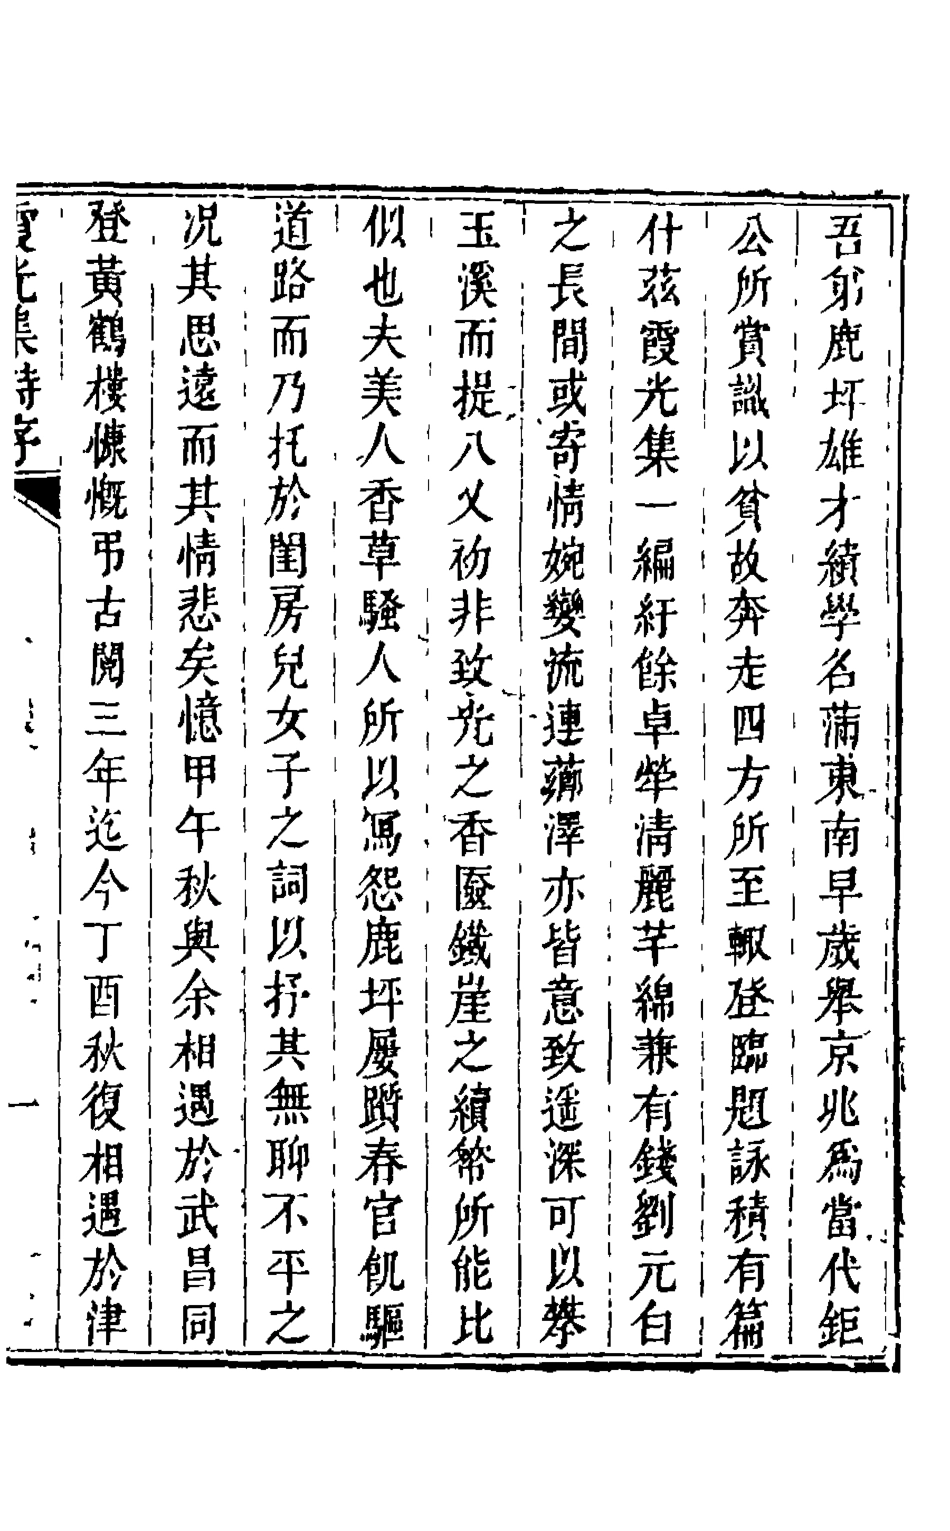 吾鹿坪雄才績學名滿東南早歲舉京兆爲當代鉅
公所賞識以貧故奔走四方所至輒登臨題詠積有篇
什茲霞光集一編紆餘卓犖淸麗芊綿兼有錢劉元白
之長間或寄情婉孌流連薌澤亦皆意致遥深可以攀
玉溪而提八乂初非致光之香匳鐵崖之續所能比
似也夫美人香草騷人所以寫怨鹿坪屢躓春官飢驅
道路而乃托於閨房兒女子之詞以抒其無聊不平之
况其思遠而其情悲矣憶甲午秋與余相遇於武昌同
登黃鶴樓慷慨弔古閱三年迄今丁酉秋復相遇於津
霞光集詩序
一